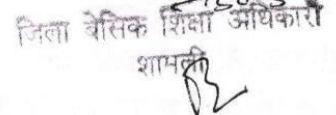 जिला बेसिक शिक्षा अधिकारी
शामली